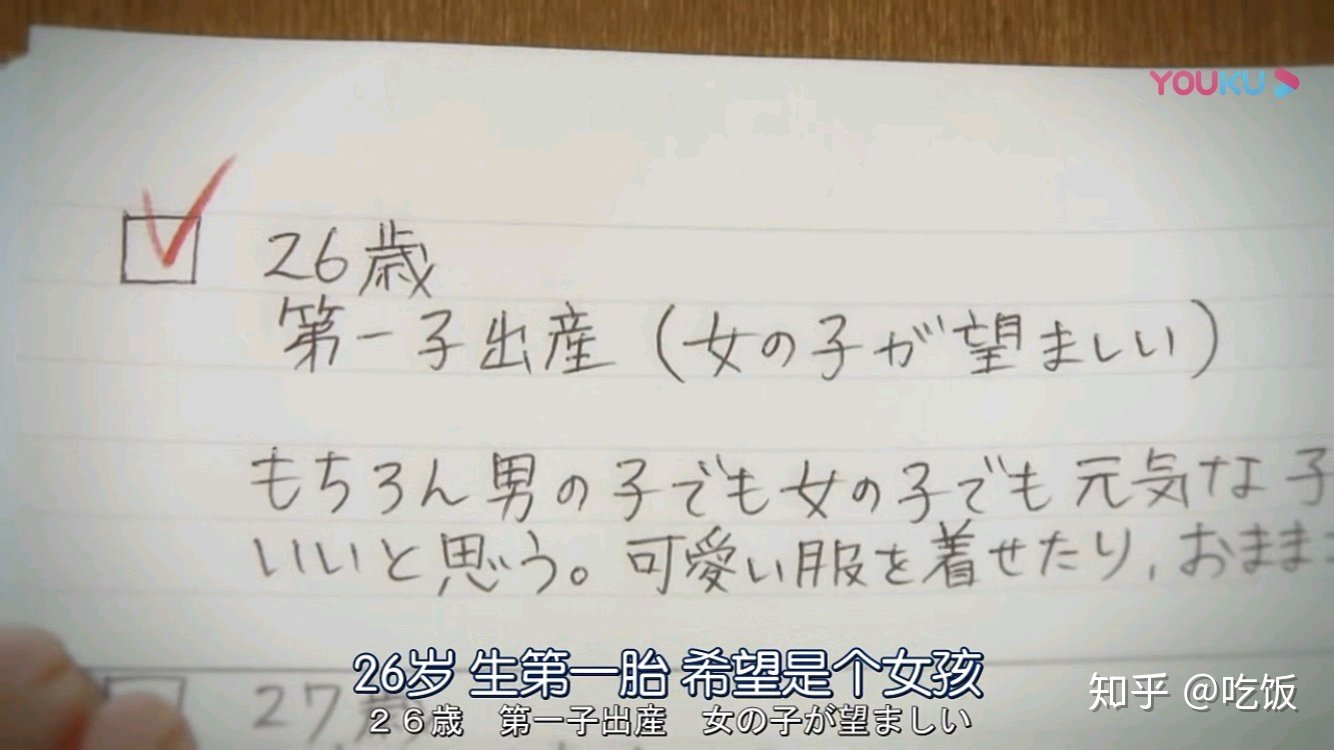 YOUKU
26歳
第一子出産(女の子が望ましい)
もちろん男の子でも女の子でも元気な子
いいと思う。可愛い服を着せたり,おまま
27歳
26岁 生第一胎 希望是个女孩
26歳 第一子出産 女の子が望ましい
知乎 @吃饭